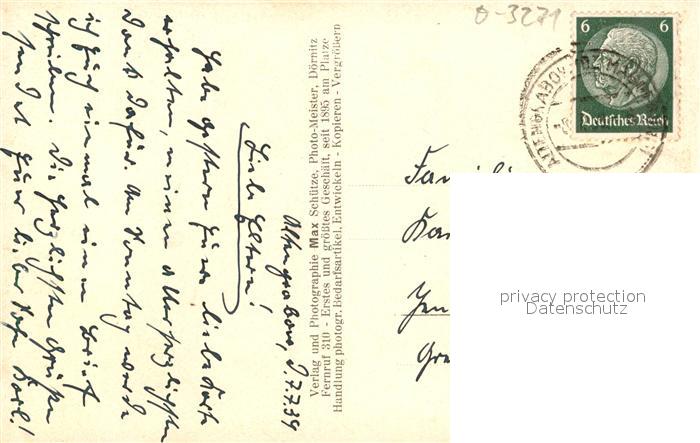 Altengrabow, d. 7.7.39
Liebe Eltern!
Habe gestern Eure liebe Karte
erhalten, meinen allerherzlichsten
Dank dafür. Am Sonntag werde
ich Euch einmal einen Brief
schreiben. Die herzlichsten Grüße
sendet Euer lieber Sohn Karl!
Verlag und Photographie Max Schütze, Photo-Meister, Dörnitz
Fernruf 310 - Erstes und größtes Geschäft, seit 1895 am Platze
Handlung photogr. Bedarfsartikel, Entwickeln - Kopieren - Vergrößern
0-3271
6 6
Deutsches Reich
ALTENGRABOW
privacy protection
Datenschutz